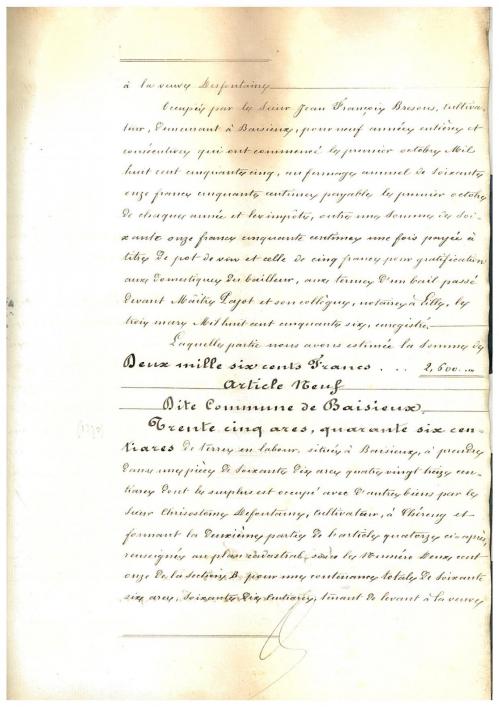 à la veuve Desfontaines
Occupée par le sieur Jean François Bresous, cultiva-
teur, demeurant à Baisieux, pour neuf années entières et
consécutives qui ont commencé le premier octobre Mil
huit cent cinquante cinq, au fermage annuel de soixante
onze francs cinquante centimes payable le premier octobre
de chaque année et les impôts, outre une somme de soi-
xante onze francs cinquante centimes une fois payée à
titre de pot de vin et celle de cinq francs pour gratification
aux domestiques du bailleur, aux termes d'un bail passé
devant Maître Pajot et son collègue, notaires à Lille, le
trois mars Mil huit cent cinquante six, enregistré.
Laquelle partie nous avons estimée la somme de
Deux mille six cents Francs . . . 2,600 „
Article Neuf
Dite Commune de Baisieux.
Trente cinq ares, quarante six cen-
tiares de terre en labour, située à Baisieux, à prendre
dans une pièce de soixante dix ares quatre vingt treize cen-
tiares dont le surplus est occupé avec d'autres biens par le
sieur Chrisostome Defontaine, cultivateur, à Chéreng et
formant la deuxième partie de l'article quatorze ci-après,
renseignée au plan cadastral sous le Numéro Deux cent
onze de la section B, pour une contenance totale de soixante
six ares, soixante dix centiares, tenant de levant à la veuve